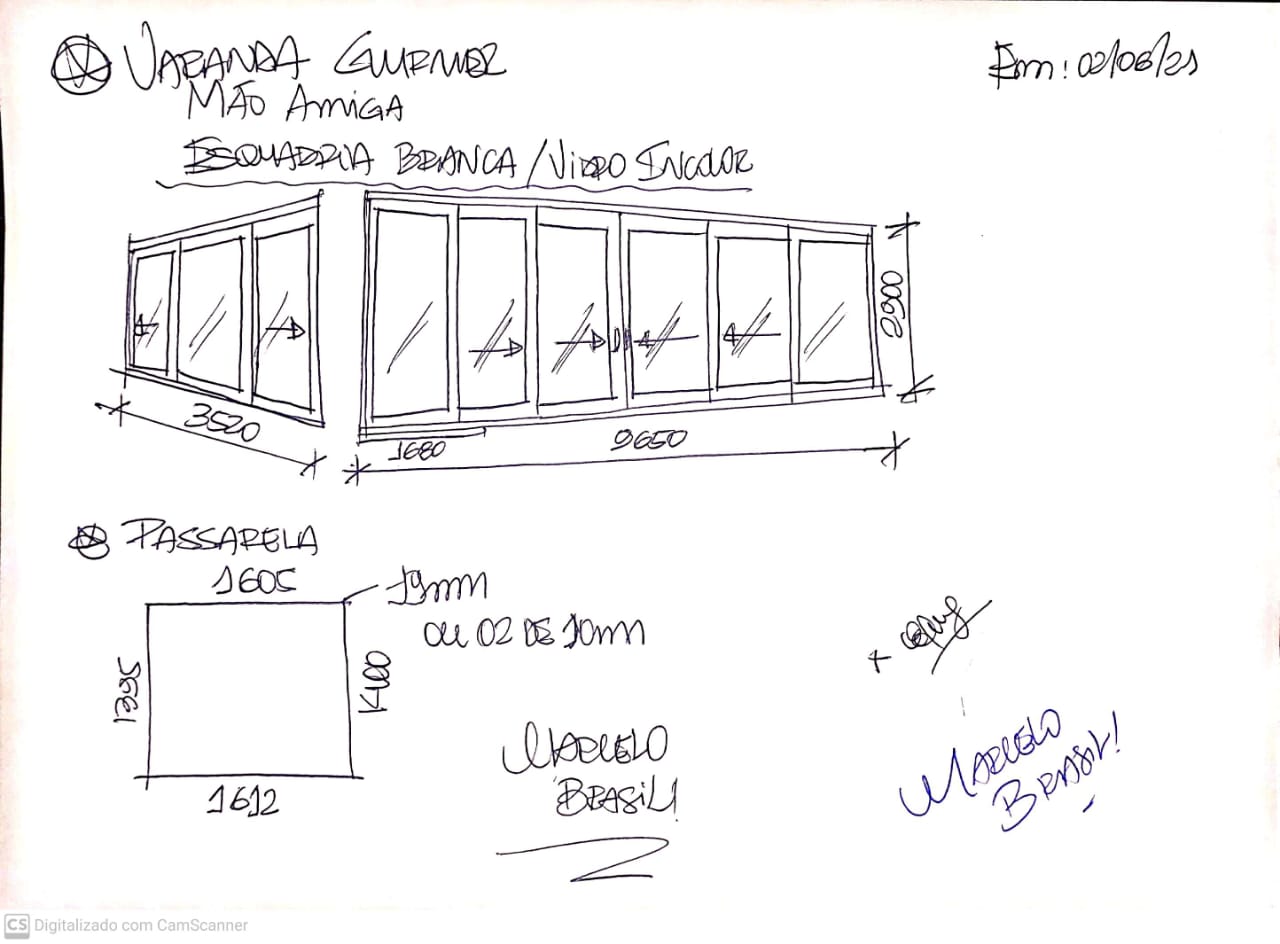 VARANDA GURMEZ
Em: 02/06/21
MÃO AMIGA
ESQUADRIA BRANCA / VIDRO INCOLOR
2900
3520
1680
9650
PASSARELA
1605
19mm
OU 02 DE 10mm
1395
1400
1612
+
MARCELO
BRASIL!
MARCELO
BRASIL!
CS Digitalizado com CamScanner